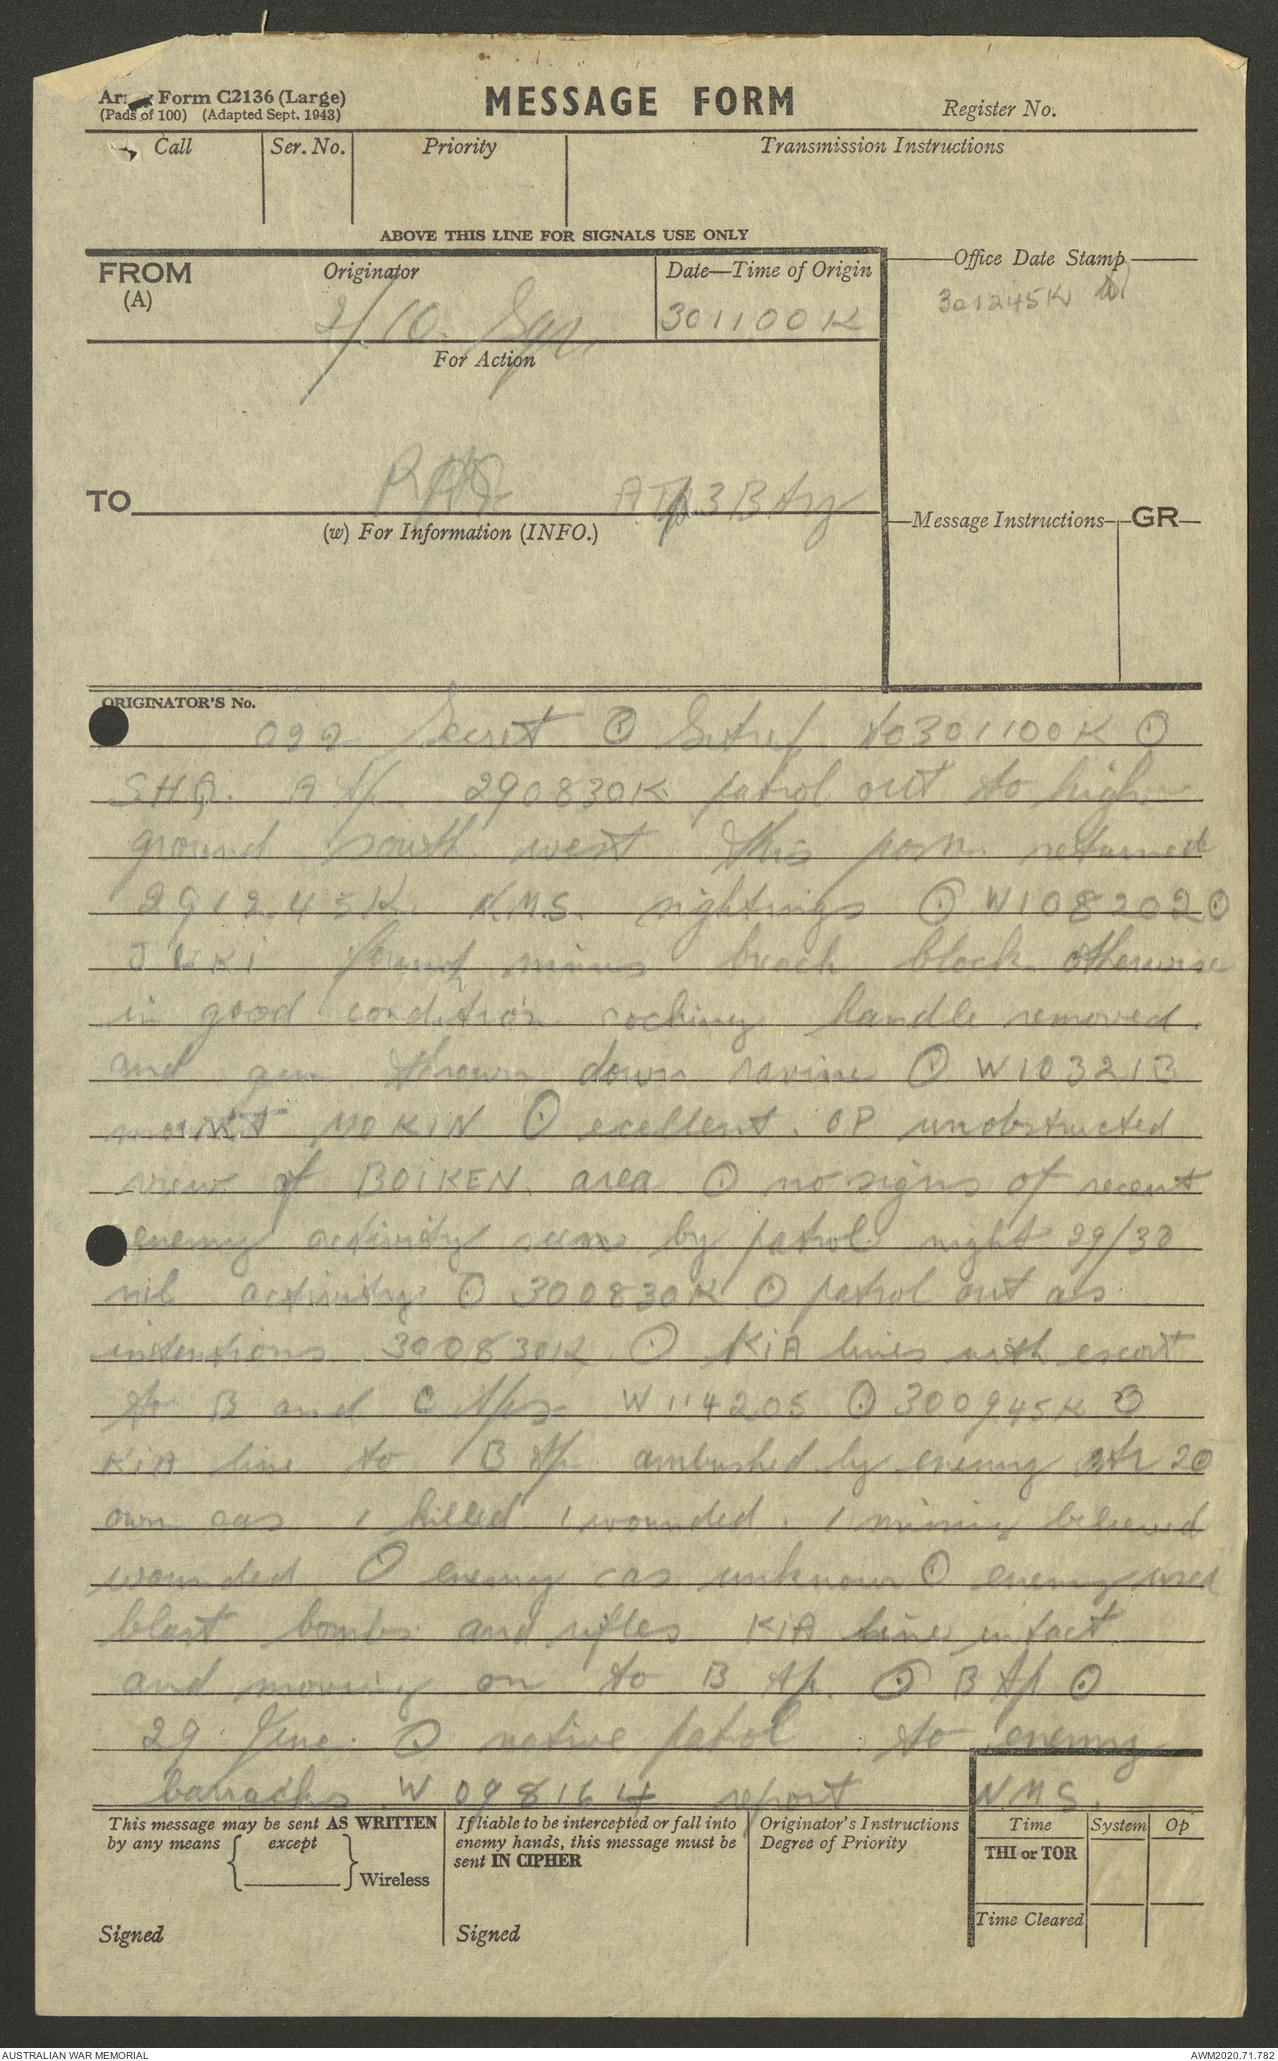 Army Form C2136 (Large)
(Pads of 100) (Adapted Sept. 1943)
MESSAGE FORM
Register No.
Call
Ser. No.
Priority
Transmission Instructions
ABOVE THIS LINE FOR SIGNALS USE ONLY
FROM
(A)
Originator
2/10 Sqn.
Date—Time of Origin
301100K
Office Date Stamp
301245K
For Action
TO
A Tp 3 Bty
(w) For Information (INFO.)
Message Instructions
GR
ORIGINATOR'S No.
099 Secret ⊙ Sitrep to 301100K ⊙
SHQ. A Tp. 290830K patrol out to high
ground south west this posn. returned
291245K. N.M.S. sightings ⊙ W108202 ⊙
JUKI found minus breach block otherwise
in good condition cocking handle removed.
and gun thrown down ravine ⊙ W103213
mount NOKIN ⊙ excellent. OP unobstructed
view of BOIKEN. area ⊙ no signs of recent
enemy activity seen by patrol night 29/30
nil activity ⊙ 300830K ⊙ patrol out as
intentions 300830K ⊙ KIA lines with escort
to B and C tps W114205 ⊙ 300945K ⊙
KIA line to B tp ambushed by enemy 20
own cas 1 killed 1 wounded. 1 missing believed
wounded ⊙ enemy cas unknown ⊙ enemy used
blast bombs and rifles KIA line intact
and moving on to B tp. ⊙ B tp ⊙
29 June. ⊙ native patrol to enemy
barracks W098164 report N.M.S.
This message may be sent AS WRITTEN
by any means except
Wireless
Signed
If liable to be intercepted or fall into
enemy hands, this message must be
sent IN CIPHER
Signed
Originator's Instructions
Degree of Priority
Time
System
Op
THI or TOR
Time Cleared
AUSTRALIAN WAR MEMORIAL
AWM2020.71.782